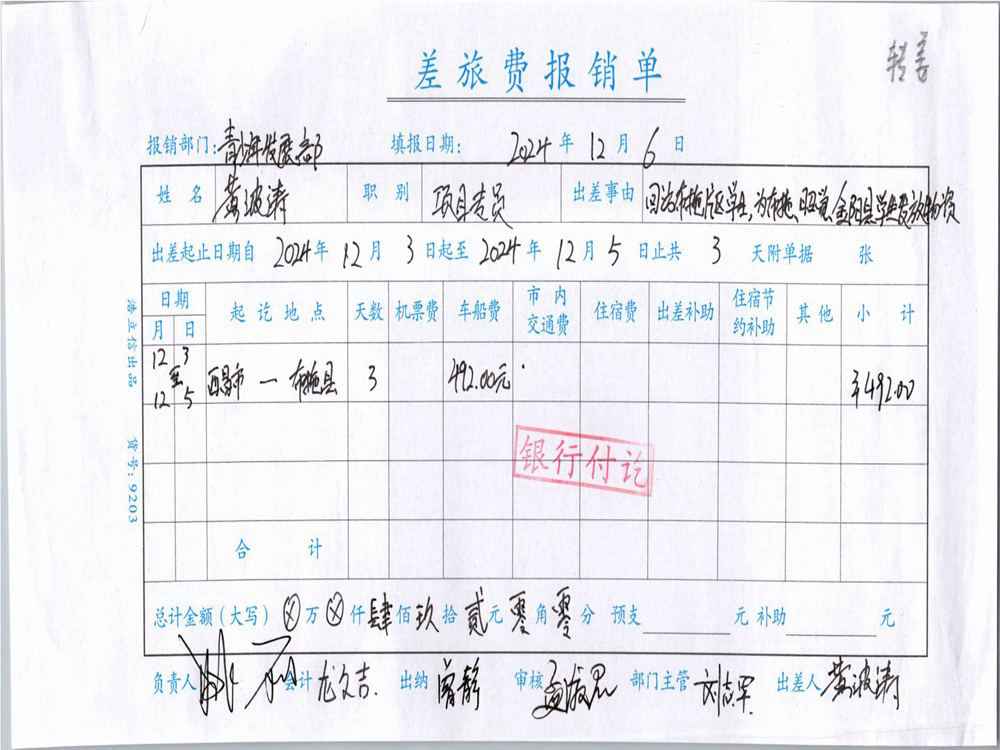 转善
差旅费报销单
报销部门: 青海发展部 填报日期: 2024 年 12 月 6 日
姓名 黄波涛 职别 项目专员 出差事由 回访布拖片区学生,为布拖、昭觉、金阳县学生发放物资
出差起止日期自 2024 年 12 月 3 日起至 2024 年 12 月 5 日止共 3 天附单据 张
日期 起讫地点 天数 机票费 车船费 市内交通费 住宿费 出差补助 住宿节约补助 其他 小计
月 日
12 3 至 12 5 西昌市 — 布拖县 3 492.00元 ¥492.00
银行付讫
合计
总计金额(大写) ⊗ 万 ⊗ 仟 肆 佰 玖 拾 贰 元 零 角 零 分 预支 元 补助 元
负责人 会计 龙文吉 出纳 曾静 审核 部门主管 刘志军 出差人 黄波涛
浩立信出品 货号:9203